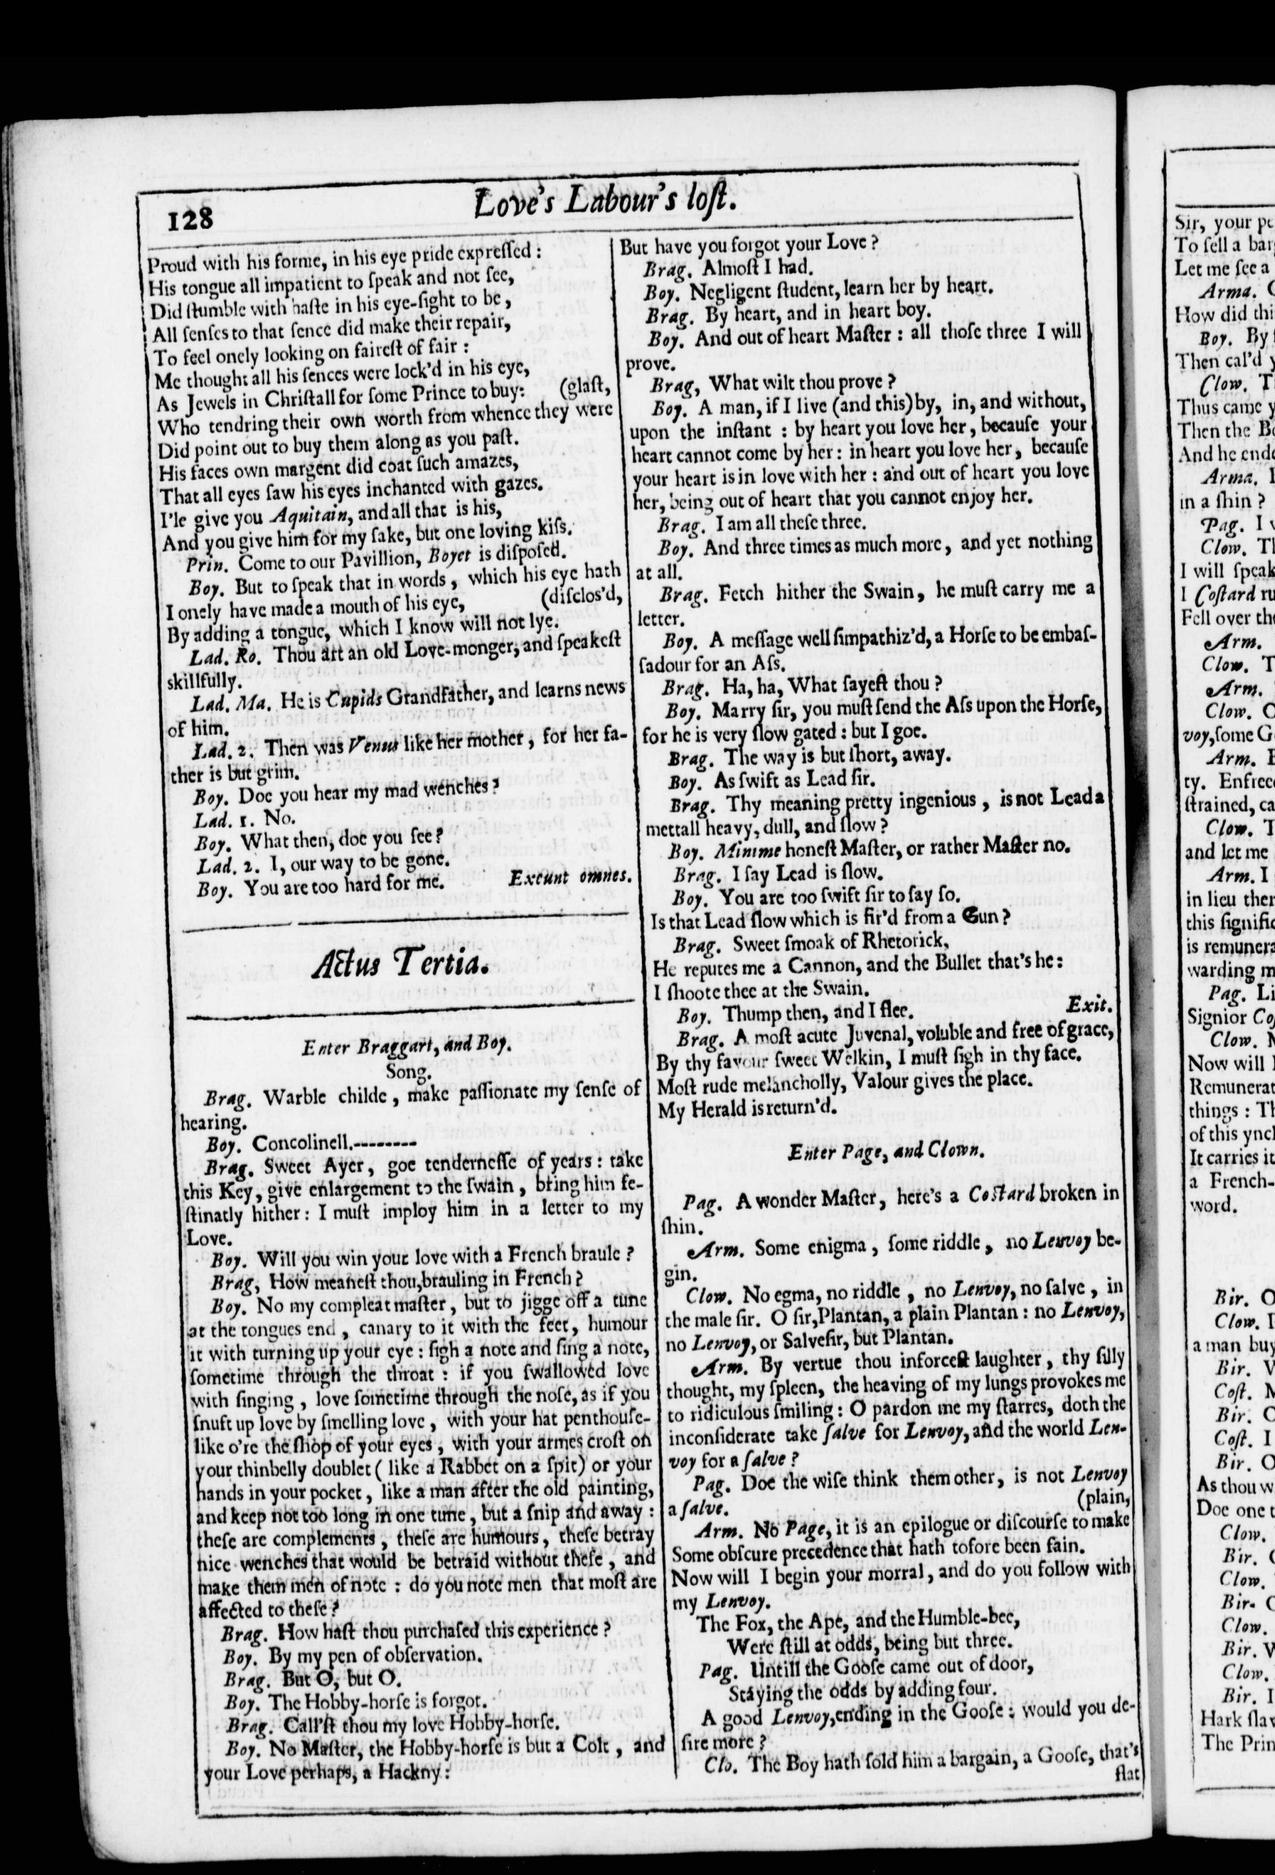 128
Love's Labour's lost.
Proud with his forme, in his eye pride expressed:
His tongue all impatient to speak and not see,
Did stumble with haste in his eye-sight to be,
All senses to that sence did make their repair,
To feel onely looking on fairest of fair:
Me thought all his sences were lock'd in his eye,
As Jewels in Christall for some Prince to buy: (glast,
Who tendring their own worth from whence they were
Did point out to buy them along as you past.
His faces own margent did coat such amazes,
That all eyes saw his eyes inchanted with gazes.
I'le give you Aquitain, and all that is his,
And you give him for my sake, but one loving kiss.
Prin. Come to our Pavillion, Boyet is disposed.
Boy. But to speak that in words, which his eye hath
I onely have made a mouth of his eye, (disclos'd,
By adding a tongue, which I know will not lye.
Lad. Ro. Thou art an old Love-monger, and speakest
skillfully.
Lad. Ma. He is Cupids Grandfather, and learns news
of him.
Lad. 2. Then was Venus like her mother, for her fa-
ther is but grim.
Boy. Doe you hear my mad wenches?
Lad. 1. No.
Boy. What then, doe you see?
Lad. 2. I, our way to be gone.
Boy. You are too hard for me. Exeunt omnes.
Actus Tertia.
Enter Braggart, and Boy.
Song.
Brag. Warble childe, make passionate my sense of
hearing.
Boy. Concolinell.--------
Brag. Sweet Ayer, goe tendernesse of years: take
this Key, give enlargement to the swain, bring him fe-
stinatly hither: I must imploy him in a letter to my
Love.
Boy. Will you win your love with a French braule?
Brag, How meanest thou, brauling in French?
Boy. No my compleat master, but to jigge off a tune
at the tongues end, canary to it with the feet, humour
it with turning up your eye: sigh a note and sing a note,
sometime through the throat: if you swallowed love
with singing, love sometime through the nose, as if you
snuft up love by smelling love, with your hat penthouse-
like o're the shop of your eyes, with your armes crost on
your thinbelly doublet (like a Rabbet on a spit) or your
hands in your pocket, like a man after the old painting,
and keep not too long in one tune, but a snip and away:
these are complements, these are humours, these betray
nice wenches that would be betraid without these, and
make them men of note: do you note men that most are
affected to these?
Brag. How hast thou purchased this experience?
Boy. By my pen of observation.
Brag. But O, but O.
Boy. The Hobby-horse is forgot.
Brag. Call'st thou my love Hobby-horse.
Boy. No Master, the Hobby-horse is but a Colt, and
your Love perhaps, a Hackny:
But have you forgot your Love?
Brag. Almost I had.
Boy. Negligent student, learn her by heart.
Brag. By heart, and in heart boy.
Boy. And out of heart Master: all those three I will
prove.
Brag, What wilt thou prove?
Boy. A man, if I live (and this) by, in, and without,
upon the instant: by heart you love her, because your
heart cannot come by her: in heart you love her, because
your heart is in love with her: and out of heart you love
her, being out of heart that you cannot enjoy her.
Brag. I am all these three.
Boy. And three times as much more, and yet nothing
at all.
Brag. Fetch hither the Swain, he must carry me a
letter.
Boy. A message well simpathiz'd, a Horse to be embas-
sadour for an Ass.
Brag. Ha, ha, What sayest thou?
Boy. Marry sir, you must send the Ass upon the Horse,
for he is very slow gated: but I goe.
Brag. The way is but short, away.
Boy. As swift as Lead sir.
Brag. Thy meaning pretty ingenious, is not Lead a
mettall heavy, dull, and slow?
Boy. Minime honest Master, or rather Master no.
Brag. I say Lead is slow.
Boy. You are too swift sir to say so.
Is that Lead slow which is fir'd from a Gun?
Brag. Sweet smoak of Rhetorick,
He reputes me a Cannon, and the Bullet that's he:
I shoote thee at the Swain.
Boy. Thump then, and I flee. Exit.
Brag. A most acute Juvenal, voluble and free of grace,
By thy favour sweet Welkin, I must sigh in thy face.
Most rude melancholly, Valour gives the place.
My Herald is return'd.
Enter Page, and Clown.
Pag. A wonder Master, here's a Costard broken in
shin.
Arm. Some enigma, some riddle, no Lenvoy be-
gin.
Clow. No egma, no riddle, no Lenvoy, no salve, in
the male sir. O sir, Plantan, a plain Plantan: no Lenvoy,
no Lenvoy, or Salve sir, but Plantan.
Arm. By vertue thou inforcest laughter, thy silly
thought, my spleen, the heaving of my lungs provokes me
to ridiculous smiling: O pardon me my starres, doth the
inconsiderate take salve for Lenvoy, and the world Len-
voy for a salve?
Pag. Doe the wise think them other, is not Lenvoy
a salve. (plain,
Arm. No Page, it is an epilogue or discourse to make
Some obscure precedence that hath tofore been sain.
Now will I begin your morral, and do you follow with
my Lenvoy.
The Fox, the Ape, and the Humble-bee,
Were still at odds, being but three.
Pag. Untill the Goose came out of door,
Staying the odds by adding four.
A good Lenvoy, ending in the Goose: would you de-
sire more?
Clo. The Boy hath sold him a bargain, a Goose, that's
flat
Sir, your
To sell a
Let me see a
Arma.
How did
Boy. By
Then cal'd
Clow.
Thus came
Then the
And he
Arma.
in a shin?
Pag. I
Clow.
I will speak
I Costard
Fell over
Arm.
Clow.
Arm.
Clow.
voy, some
Arm.
ty.
strained,
Clow.
and let me
Arm. I
in lieu
this
is
warding
Pag.
Signior
Clow.
Now will
things:
of this
It carries it
a French-
word.
Bir. O
Clow.
a man buy
Bir.
Cost.
Bir.
Cost. I
Bir. O
As thou
Doe one
Clow.
Bir.
Clow.
Bir.
Clow.
Bir.
Clow.
Bir.
Hark
The